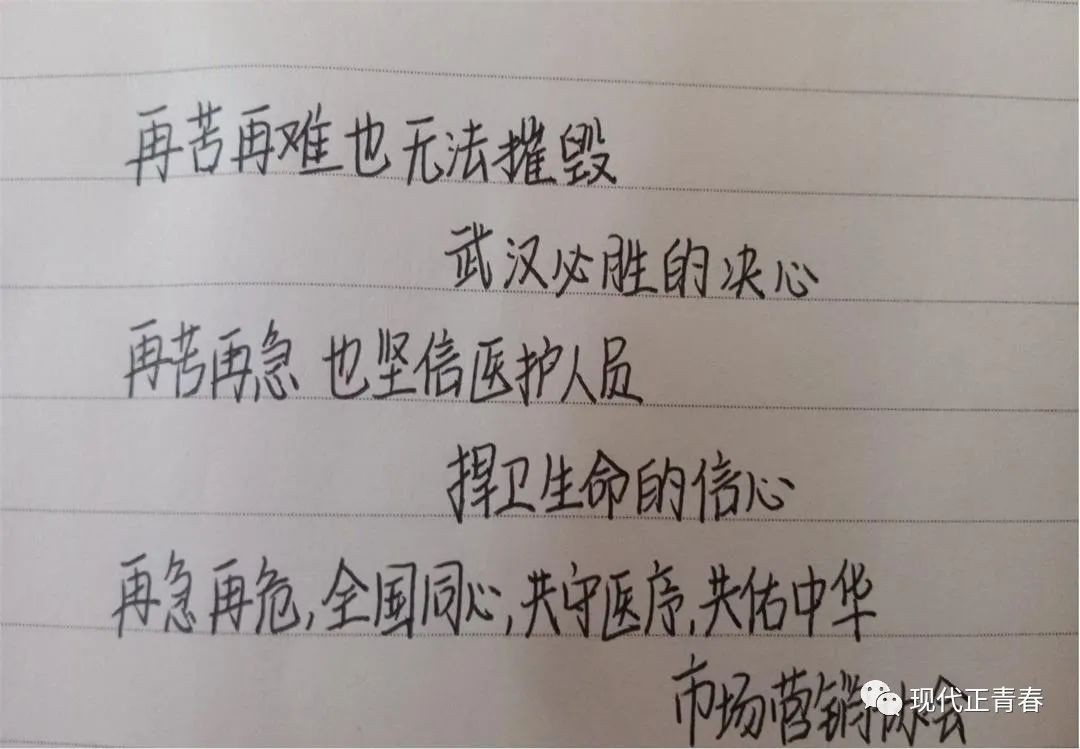 再苦再难也无法摧毁
武汉必胜的决心
再苦再急 也坚信医护人员
捍卫生命的信心
再急再危,全国同心,共守医序,共佑中华
市场营销协会
现代正青春